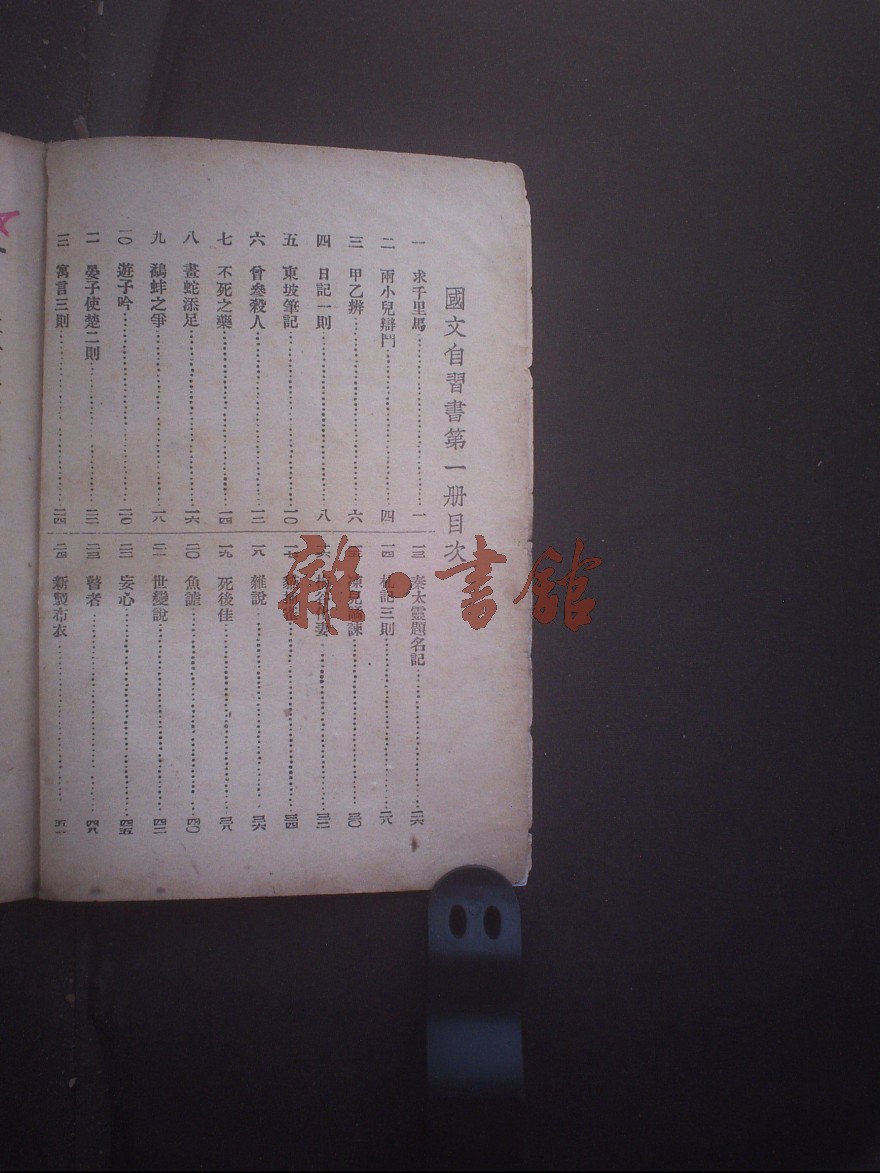 國文自習書第一册目次
一 求千里馬 一
二 兩小兒辯鬥 四
三 甲乙辨 六
四 日記一則 八
五 東坡筆記 一〇
六 曾參殺人 一二
七 不死之藥 一四
八 畫蛇添足 一六
九 鷸蚌之爭 一八
一〇 遊子吟 二〇
二 晏子使楚二則 二二
三 寓言三則 二四
一三 秦太靈題名記 二六
一四 札記三則 二八
諫 三〇
妻 三二
三四
一八 雜說 三六
一九 死後佳 三八
二〇 魚謔 四〇
二一 世變說 四二
二二 妄心 四五
二三 瞽者 四八
二四 新製布衣 五一
雜·書館